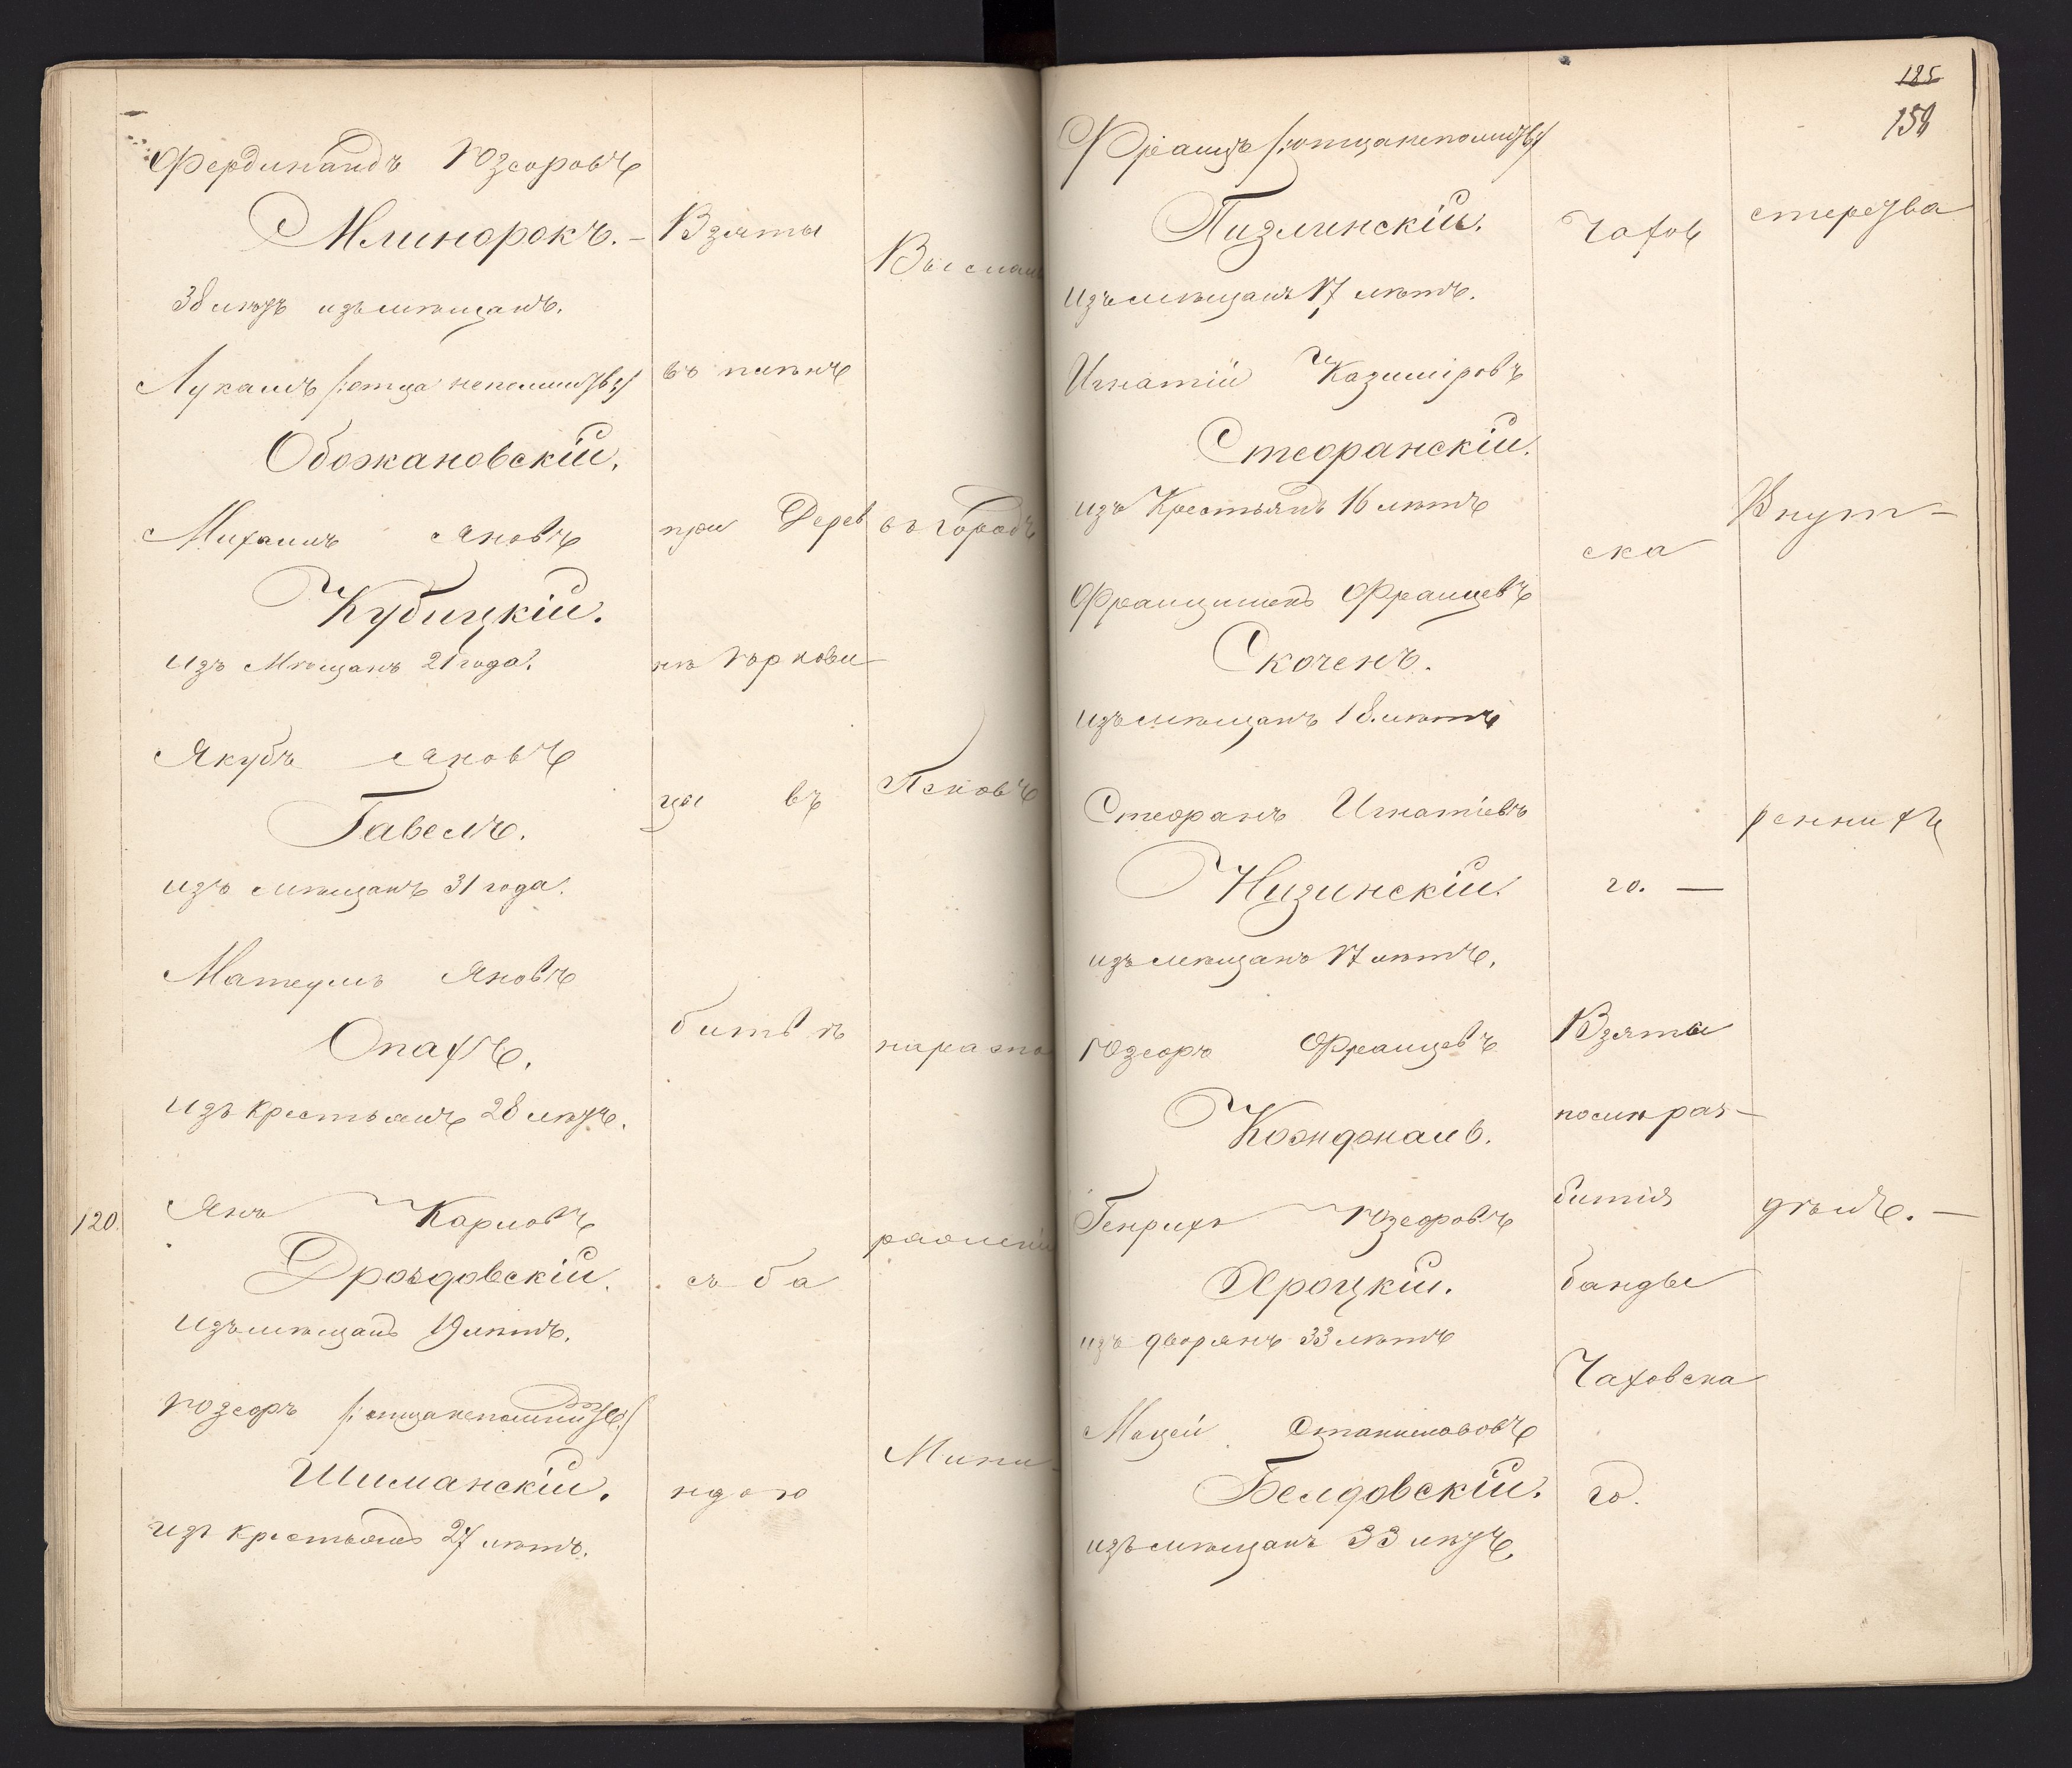 Фердинандъ Юзефовъ
Млинорокъ. –
38 лѣтъ изъ мѣщанъ.
Лукашъ /:отца непомнитъ:/
Обожановскій.
Михаилъ Яновъ
Кубицкій.
изъ Мѣщанъ 21 года.
Якубъ Яновъ
Гавелъ.
изъ мѣщанъ 31 года.
Матеушъ Яновъ
Опахъ.
изъ крестьянъ 28 лѣтъ.
120. Янъ Карловъ
Дроздовскій.
изъ мѣщанъ 19 лѣтъ.
Юзефъ /:отца непомнитъ:/
Шиманскій.
изъ крестьянъ 27 лѣтъ.
Взяты
въ плѣнъ
при Дерев
нѣ
цы въ
битвѣ
съ ба
ндою
Высланы
въ городъ
Псковъ
на распо
ряженіе
Мини-
185
158
Францъ /:отца непомнитъ:/
Пизлинскій.
изъ мѣщанъ 17 лѣтъ.
Игнатій Казиміровъ
Стефранскій.
изъ Крестьянъ 16 лѣтъ
Францишекъ Францевъ
Скоченъ.
изъ мѣщанъ 18 лѣтъ
Стефранъ Игнатіевъ
Низинскій.
изъ мѣщанъ 17 лѣтъ.
Юзефъ Францевъ
Генрихъ Юзефовъ
Яроцкій.
изъ дворянъ 33 лѣтъ
Мацей Станиславовъ
Белдовскій.
изъ мѣщанъ 33 лѣтъ.
Чахов
ска
го. —
Взяты
послѣ раз-
битія
банды
Чаховска
го.
стерства
Внут-
реннихъ
дѣлъ. —